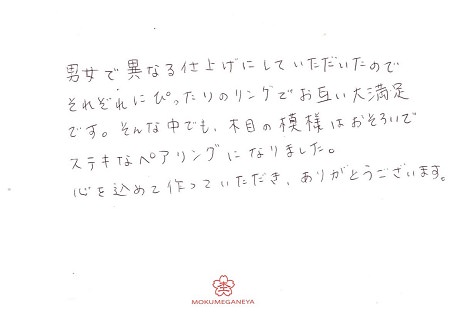 男女で異なる仕上げにしていただいたので
それぞれにぴったりのリングでお互い大満足
です。そんな中でも、木目の模様はおそろいで
ステキなペアリングになりました。
心を込めて作っていただき、ありがとうございます。
MOKUMEGANEYA